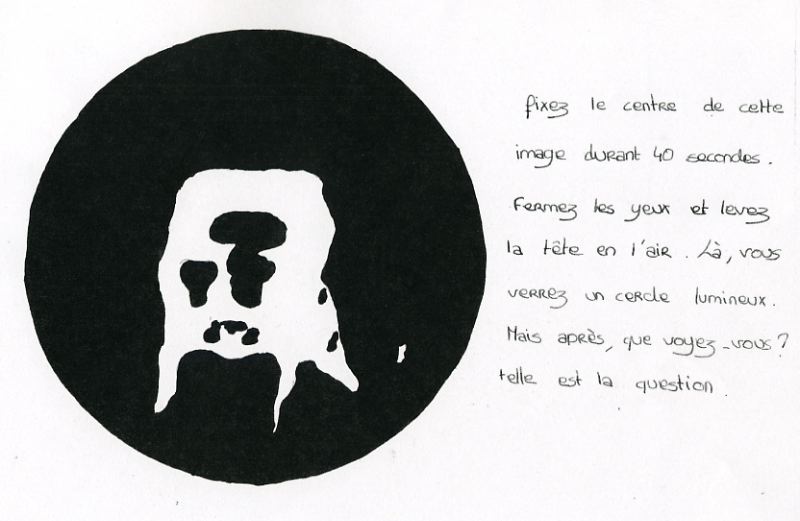 fixez le centre de cette
image durant 40 secondes.
Fermez les yeux et levez
la tête en l'air. Là, vous
verrez un cercle lumineux.
Mais après, que voyez-vous?
telle est la question.